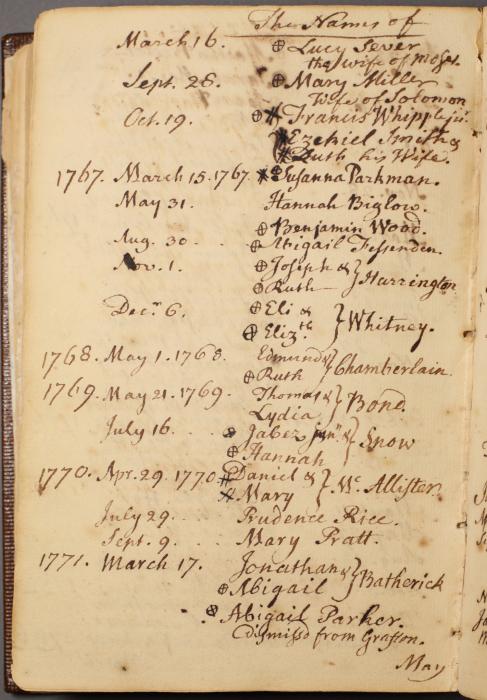 The Names of
March 16. ⊕ Lucy Sever
the wife of Moses.
Sept. 28. ⊕ Mary Miller
Wife of Solomon
Oct. 19. ⊕ # Francis Whipple jr.
# Ezekiel Smith &
# Ruth his Wife.
1767. March 15. 1767. # ⊕ Susanna Parkman.
May 31. Hannah Biglow.
⊕ Benjamin Wood.
Aug. 30 ⊕ Abigail Fessenden.
Nov. 1. ⊕ Joseph & } Harrington
⊕ Ruth
Decr. 6. ⊕ Eli & } Whitney.
⊕ Elizth
1768. May 1. 1768. Edmund & } Chamberlain
⊕ Ruth
1769. May 21. 1769. Thomas & } Bond.
Lydia
July 16. ⊕ Jabez junr. & } Snow
⊕ Hannah
1770. Apr. 29. 1770 # Daniel & } Mc. Allister
# Mary
July 29. Prudence Rice.
Sept. 9. Mary Pratt.
1771. March 17. Jonathan & } Batherick
⊕ Abigail
⊕ Abigail Parker.
Dismissd from Grafton.
May